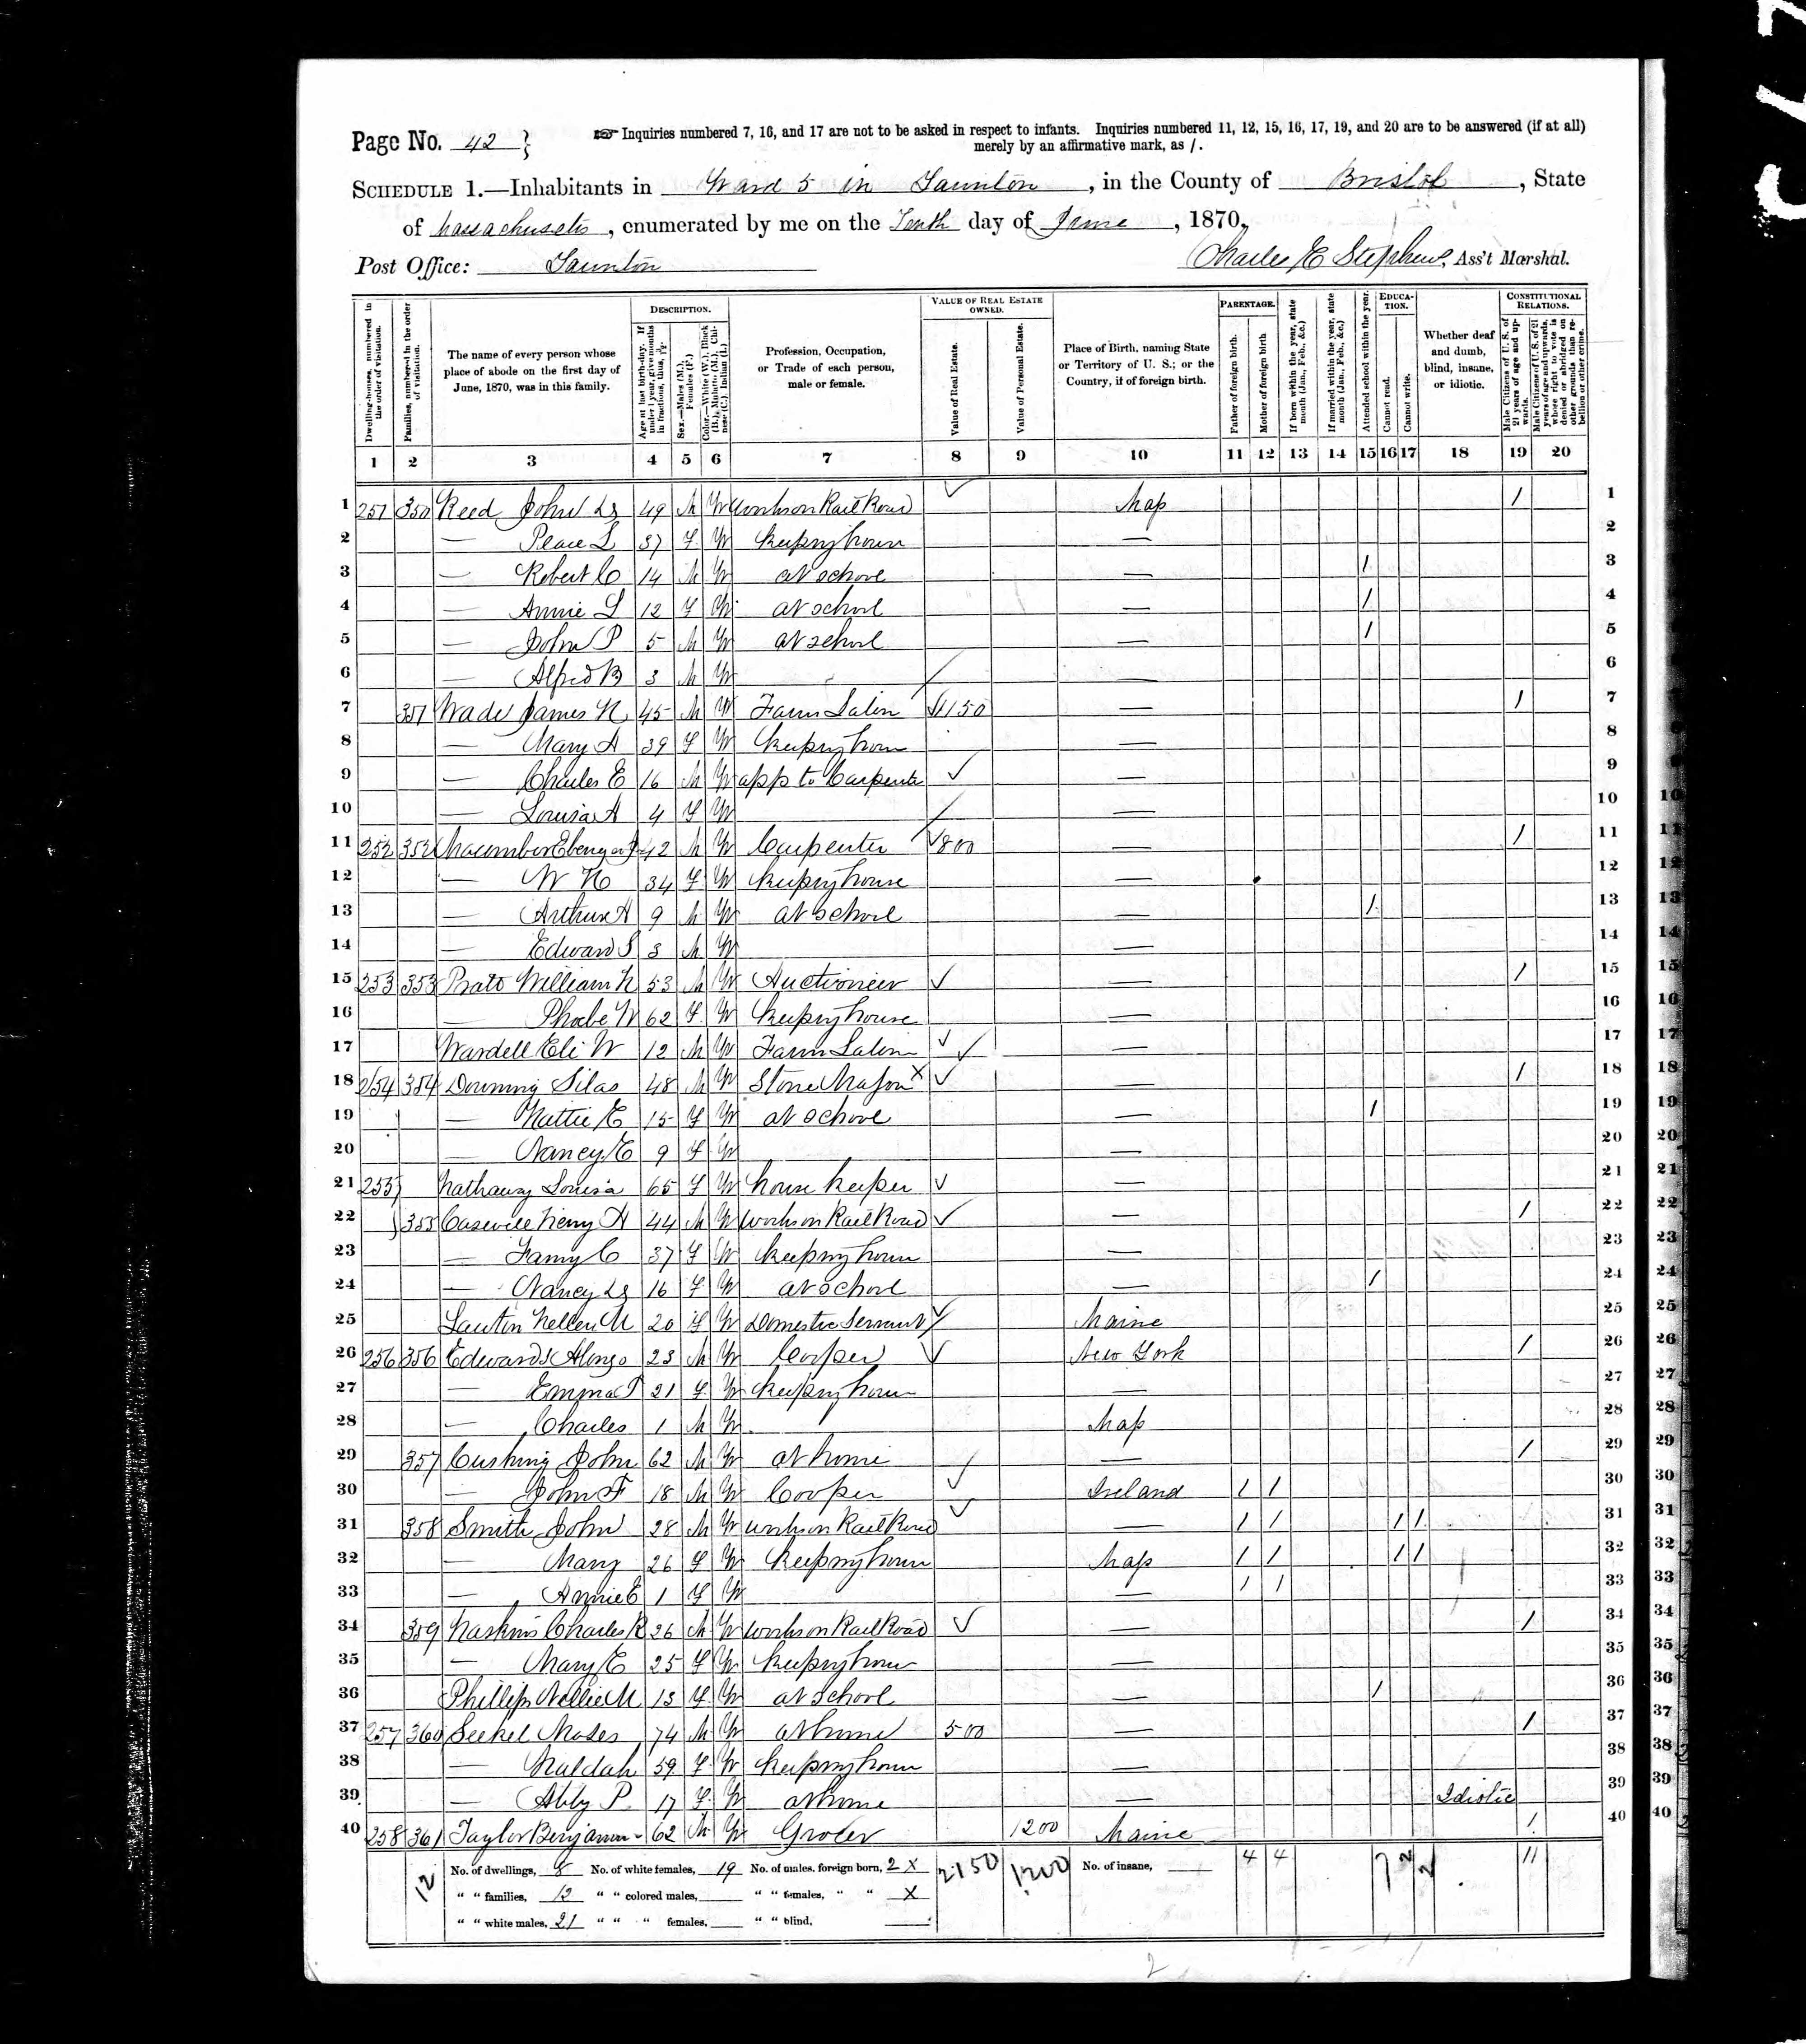 Page No. 42 }
☞ Inquiries numbered 7, 16, and 17 are not to be asked in respect to infants. Inquiries numbered 11, 12, 15, 16, 17, 19, and 20 are to be answered (if at all)
merely by an affirmative mark, as /.
SCHEDULE 1.—Inhabitants in Ward 5 in Taunton, in the County of Bristol, State
of Massachusetts, enumerated by me on the Tenth day of June, 1870.
Post Office: Taunton
Charles E Stephens, Ass't Marshal.
Dwelling-houses, numbered in the order of visitation.
Families, numbered in the order of visitation.
The name of every person whose place of abode on the first day of June, 1870, was in this family.
DESCRIPTION.
Age at last birth-day. If under 1 year, give months in fractions, thus, 3/12.
Sex.—Males (M.), Females (F.)
Color.—White (W.), Black (B.), Mulatto (M.), Chinese (C.), Indian (I.)
Profession, Occupation, or Trade of each person, male or female.
VALUE OF REAL ESTATE OWNED.
Value of Real Estate.
Value of Personal Estate.
Place of Birth, naming State or Territory of U. S.; or the Country, if of foreign birth.
PARENTAGE.
Father of foreign birth.
Mother of foreign birth
If born within the year, state month (Jan., Feb., &c.)
If married within the year, state month (Jan., Feb., &c.)
Attended school within the year.
EDUCATION.
Cannot read.
Cannot write.
Whether deaf and dumb, blind, insane, or idiotic.
CONSTITUTIONAL RELATIONS.
Male Citizens of U. S. of 21 years of age and upwards.
Male Citizens of U. S. of 21 years of age and upwards, whose right to vote is denied or abridged on other grounds than rebellion or other crime.
1 2 3 4 5 6 7 8 9 10 11 12 13 14 15 16 17 18 19 20
1 251 350 Reed John 49 M W Works on Rail Road ✓ Mass / 1
2 — L 37 F W Keeping house — 2
3 — Robert C 14 M W at school — / 3
4 — Annie L 12 F W at school — / 4
5 — John P 5 M W at school — / 5
6 — Alfred B 3 M W — 6
7 351 Wade James H 45 M W Farm Labor 1150 — / 7
8 — Mary A 39 F W Keeping house — 8
9 — Charles E 16 M W app to Carpenter ✓ — 9
10 — Louisa A 4 F W — 10
11 252 352 Macomber Ebenezer 42 M W Carpenter ✓ 800 — / 11
12 — W H 34 F W Keeping house — 12
13 — Arthur A 9 M W at school — / 13
14 — Edward S 3 M W — 14
15 253 353 Pratt William H 53 M W Auctioneer ✓ — / 15
16 — Phoebe W 62 F W Keeping house — 16
17 Wardell Eli W 12 M W Farm Labor ✓ — 17
18 254 354 Downing Silas 48 M W Stone Mason X ✓ — / 18
19 — Hattie E 15 F W at school — / 19
20 — Nancy E 9 F W — 20
21 255 Hathaway Louisa 65 F W house keeper ✓ — 21
22 355 Caswell Henry A 44 M W Works on Rail Road ✓ — / 22
23 — Fanny C 37 F W Keeping house — 23
24 — Nancy 16 F W at School — / 24
25 Hellen M 20 F W Domestic Servant ✓ Maine 25
26 256 356 Edwards Alonzo 23 M W Cooper ✓ New York / 26
27 — Emma 21 F W Keeping house — 27
28 — Charles 1 M W Mass 28
29 357 Cushing John 62 M W at home — / 29
30 — John F 18 M W Cooper ✓ Ireland / / 30
31 358 Smith John 28 M W Works on Rail Road ✓ — / / / / 31
32 — Mary 26 F W Keeping house Mass / / / / 32
33 — Annie E 1 F W — / / 33
34 359 Haskins Charles R 26 M W Works on Rail Road ✓ — / 34
35 — Mary E 25 F W Keeping house — 35
36 Phillips Nellie M 13 F W at School — / 36
37 257 360 Seekel Moses 74 M W at home 500 — / 37
38 — Huldah 59 F W Keeping house — 38
39 — Abby P 17 F W at home — Idiotic 39
40 258 361 Taylor Benjamin 62 M W Grocer 1200 Maine / 40
12 No. of dwellings, 8 No. of white females, 19 No. of males, foreign born, 2 X 2150 1200 No. of insane, 4 4 7 2 2 11
" " families, 12 " " colored males, " " females, " " X
" " white males, 21 " " " females, " " blind,